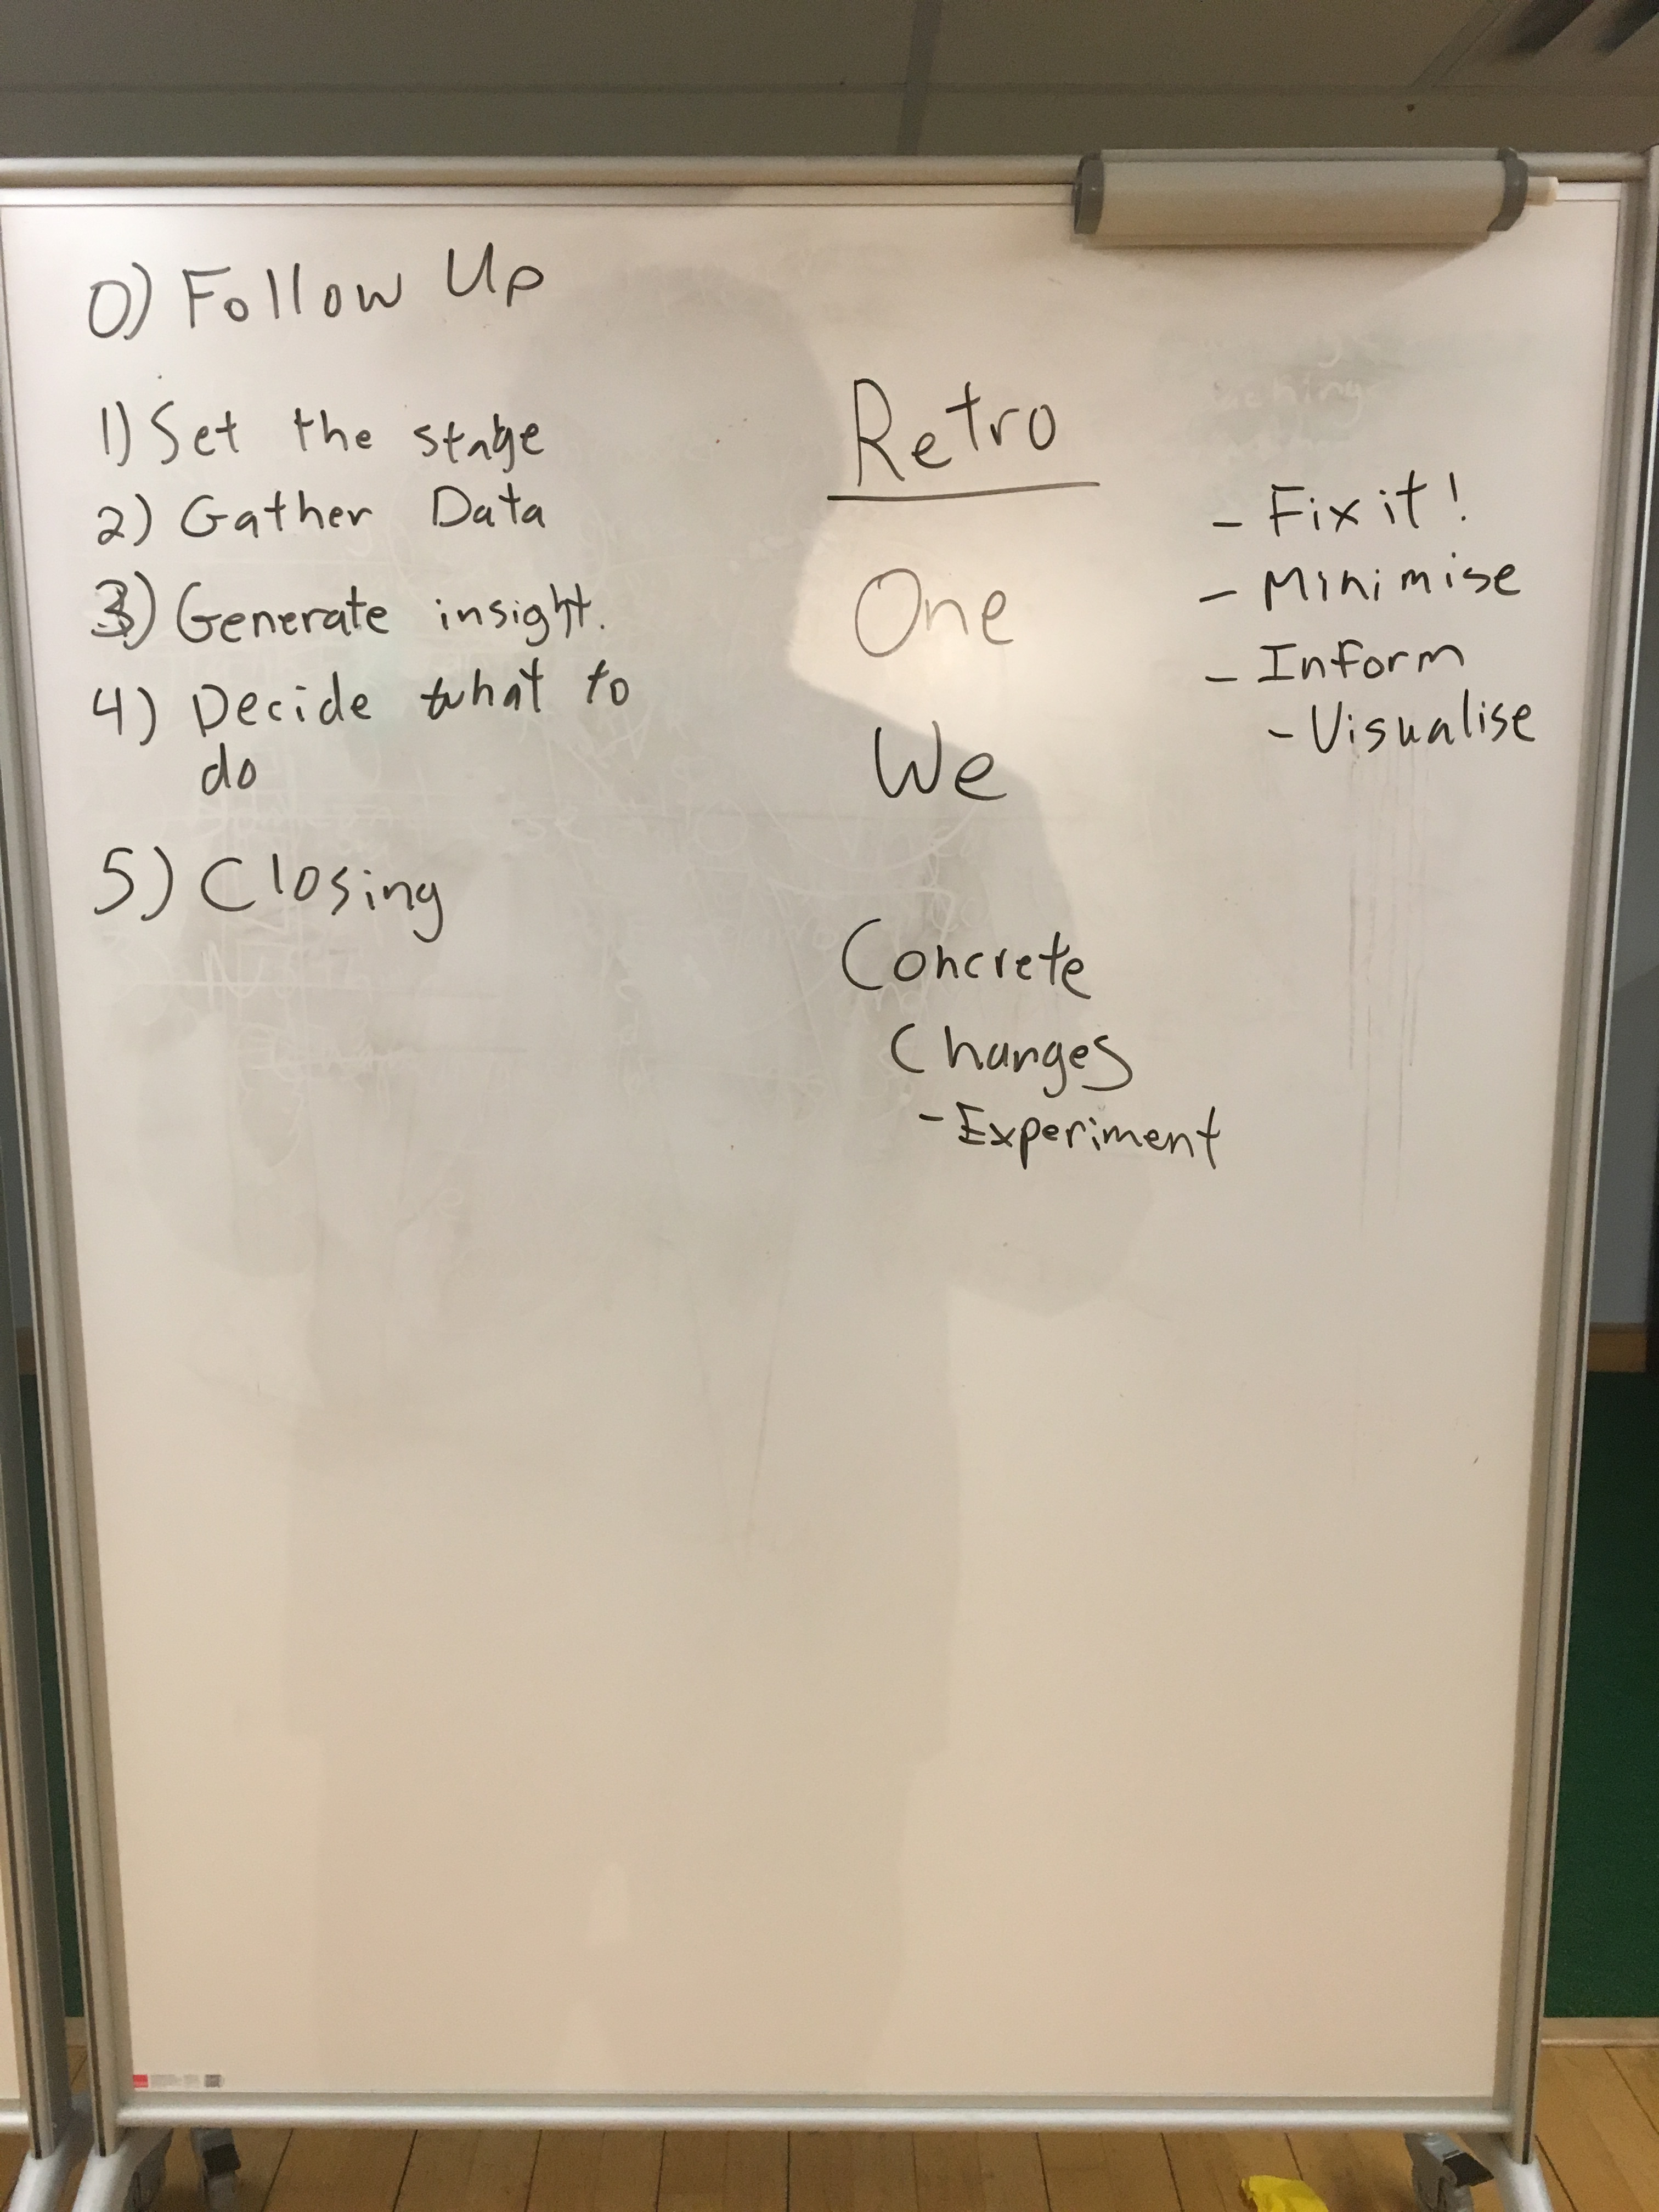 0) Follow Up
1) Set the stage
2) Gather Data
3) Generate insight.
4) Decide what to
do
5) Closing
Retro
One
We
Concrete
Changes
- Experiment
- Fix it!
- Minimise
- Inform
- Visualise